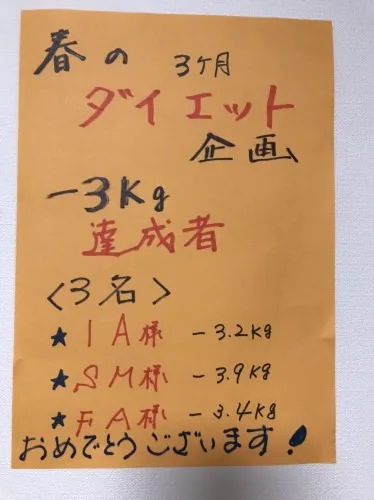 春の 3ケ月
ダイエット
企画
-3Kg
達成者
<3名>
★IA様 -3.2Kg
★SM様 -3.9Kg
★FA様 -3.4Kg
おめでとうございます!